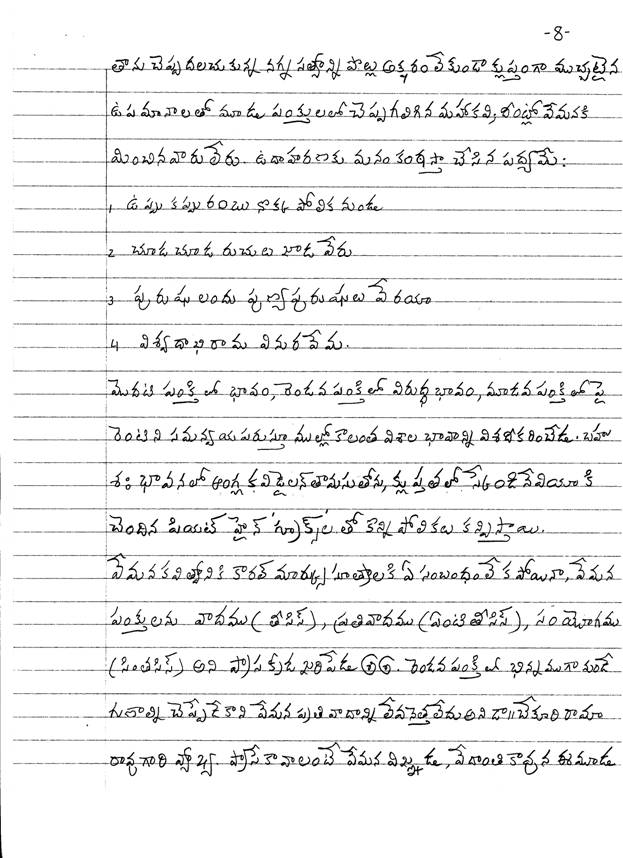 -8-
తాను చెప్పదలచుకున్న నగ్న సత్యాన్ని పొల్లు అక్షరంలేకుండా క్లుప్తంగా ముచ్చటైన
ఉపమానాలతో మూడు పంక్తులలో చెప్పగలిగిన మహాకవి, శైలో వేమనకి
మించినవారు లేరు. ఉదాహరణకు మనం కంఠస్తా చేసిన పద్యమే:
1. ఉప్పు కప్పురంబు నొక్క పోలిక నుండు
2 చూడ చూడ రుచుల జాడ వేరు
3 పురుషులందు పుణ్యపురుషులు వేరయా
4 విశ్వదాభిరామ వినురవేమ.
మొదటి పంక్తిలో భావం, రెండవ పంక్తిలో విరుద్ధ భావం, మూడవ పంక్తిలో పై
రెంటిని సమన్వయపరుస్తూ ముల్లోకాలంత విశాల భావాన్ని విశదీకరించేడు. బహు
శః భావనలో ఆంగ్లకవి డైలన్ తామసుతోను, క్లుప్తతలో స్కేండినేవియాకి
చెందిన పియట్ హైన్ 'గ్రూక్స్'ల తో కొన్ని పోలికలు కన్పిస్తాయి.
వేమన కవిత్వానికి కారల్ మార్క్సు సూత్రాలకి ఏ సంబంధం లేకపోయినా, వేమన
పంక్తులను వాదము (థీసిస్), ప్రతివాదము (ఏంటిథీసిస్), సంయోగము
(సింతసిస్) అని ప్రాసక్యుడు జరిపేడు. రెండవ పంక్తిలో భిన్నముగానుండే
గుణాల్ని చెప్పేడేకాని వేమన ప్రతివాదాన్ని లేవనెత్తలేదు అని డా॥చేకూరి రామా
రావుగారి నోట్సు. ప్రాసే కావాలంటే వేమన విజ్ఞుడు, వేదాంతి కావున ఈ మూడు